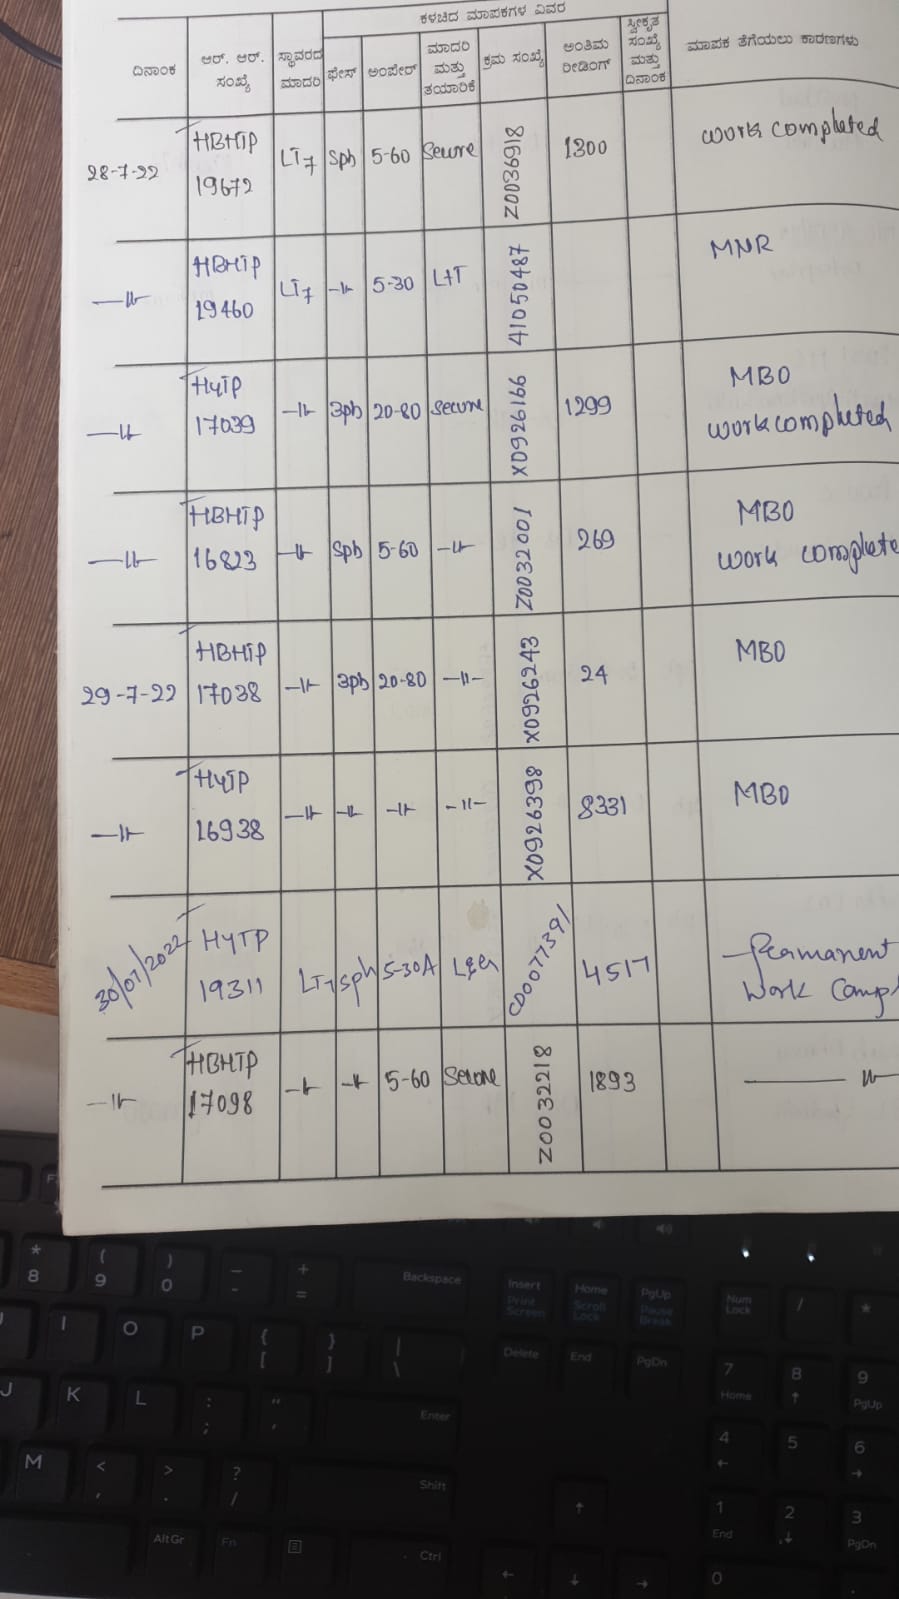 ಕಳಚಿದ ಮಾಪಕಗಳ ವಿವರ
ದಿನಾಂಕ ಆರ್. ಆರ್. ಸಂಖ್ಯೆ ಸ್ಥಾವರದ ಮಾದರಿ ಫೇಸ್ ಅಂಪೇರ್ ಮಾದರಿ ಮತ್ತು ತಯಾರಿಕೆ ಕ್ರಮ ಸಂಖ್ಯೆ ಅಂತಿಮ ರೀಡಿಂಗ್ ಸ್ವೀಕೃತ ಸಂಖ್ಯೆ ಮತ್ತು ದಿನಾಂಕ ಮಾಪಕ ತೆಗೆಯಲು ಕಾರಣಗಳು
28-7-22 HBHTP 19672 LT7 Sph 5-60 Secure Z0036918 1300 work completed
–〃– HBHTP 19460 LT7 –〃– 5-30 L+T 41050487 MNR
–〃– HYTP 17039 –〃– 3ph 20-80 Secure X0926166 1299 MBO work completed
–〃– HBHTP 16823 –〃– Sph 5-60 –〃– Z0032001 269 MBO work complete
29-7-22 HBHTP 17038 –〃– 3ph 20-80 –〃– X0926243 24 MBO
–〃– HYTP 16938 –〃– –〃– –〃– –〃– X0926398 8331 MBO
30/07/2022 HYTP 19311 LT7 Sph 5-30A C0007739 4517 Permanent Work Comp
–〃– HBHTP 17098 –〃– –〃– 5-60 Secure Z0032218 1893 –〃
F
* 8
( 9
) 0
_ -
+ =
Backspace
Insert Print Screen
Home Scroll Lock
PgUp Pause Break
Num Lock
/
*
I O P { [ } ] | \
Delete End PgDn
7 Home 8 ↑ 9 PgUp
J K L : ; " '
Enter
4 ← 5 6 →
M < , > . ? /
Shift
↑
1 End 2 ↓ 3 PgDn
Alt Gr Fn Ctrl
← ↓ → 0 .